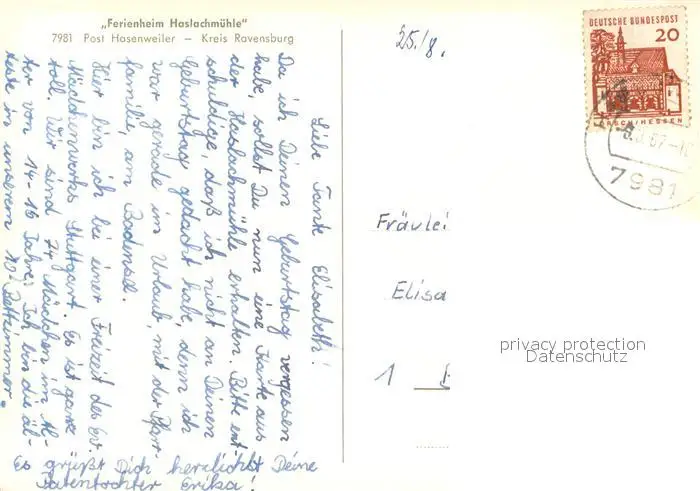 „Ferienheim Haslachmühle"
7981 Post Hasenweiler — Kreis Ravensburg
Liebe Tante Elisabeth!
Da ich Deinen Geburtstag vergessen
habe, sollst Du nun eine Karte aus
der Haslachmühle erhalten. Bitte ent-
schuldige, daß ich nicht an Deinen
Geburtstag gedacht habe, denn ich
war gerade im Urlaub, mit der Pfarr-
familie, am Bodensee.
Hier bin ich bei einer Freizeit des Ev.
Mädchenwerks Stuttgart. Es ist ganz
toll. Wir sind 74 Mädchen im Al-
ter von 14-16 Jahre. Ich bin die äl-
teste in unserem 10-Bettzimmer.
Es grüßt Dich herzlichst Deine
Patentochter Erika!
25./8.
DEUTSCHE BUNDESPOST
20
RSCH/HESSEN
7981
Fräulei
Elisa
1
privacy protection
Datenschutz